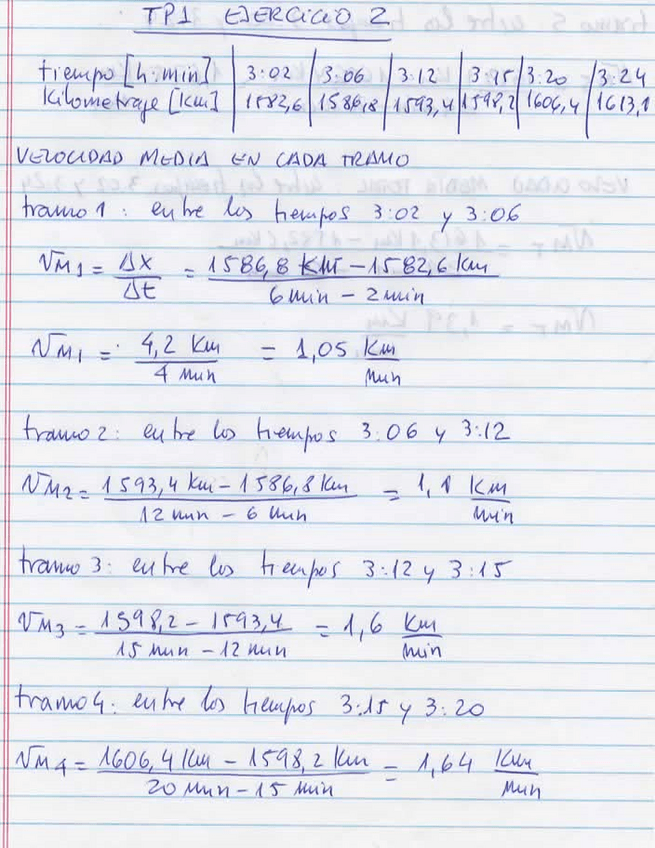 TP1 EJERCICIO 2
tiempo [h:min] 3:02 3:06 3:12 3:15 3:20 3:24
Kilometraje [km] 1582,6 1586,8 1593,4 1598,2 1606,4 1613,1
VELOCIDAD MEDIA EN CADA TRAMO
tramo 1: entre los tiempos 3:02 y 3:06
VM1 = Δx/Δt = (1586,8 km - 1582,6 km)/(6 min - 2 min)
VM1 = 4,2 km/4 min = 1,05 km/min
tramo 2: entre los tiempos 3:06 y 3:12
VM2 = (1593,4 km - 1586,8 km)/(12 min - 6 min) = 1,1 km/min
tramo 3: entre los tiempos 3:12 y 3:15
VM3 = (1598,2 - 1593,4)/(15 min - 12 min) = 1,6 km/min
tramo 4: entre los tiempos 3:15 y 3:20
VM4 = (1606,4 km - 1598,2 km)/(20 min - 15 min) = 1,64 km/min